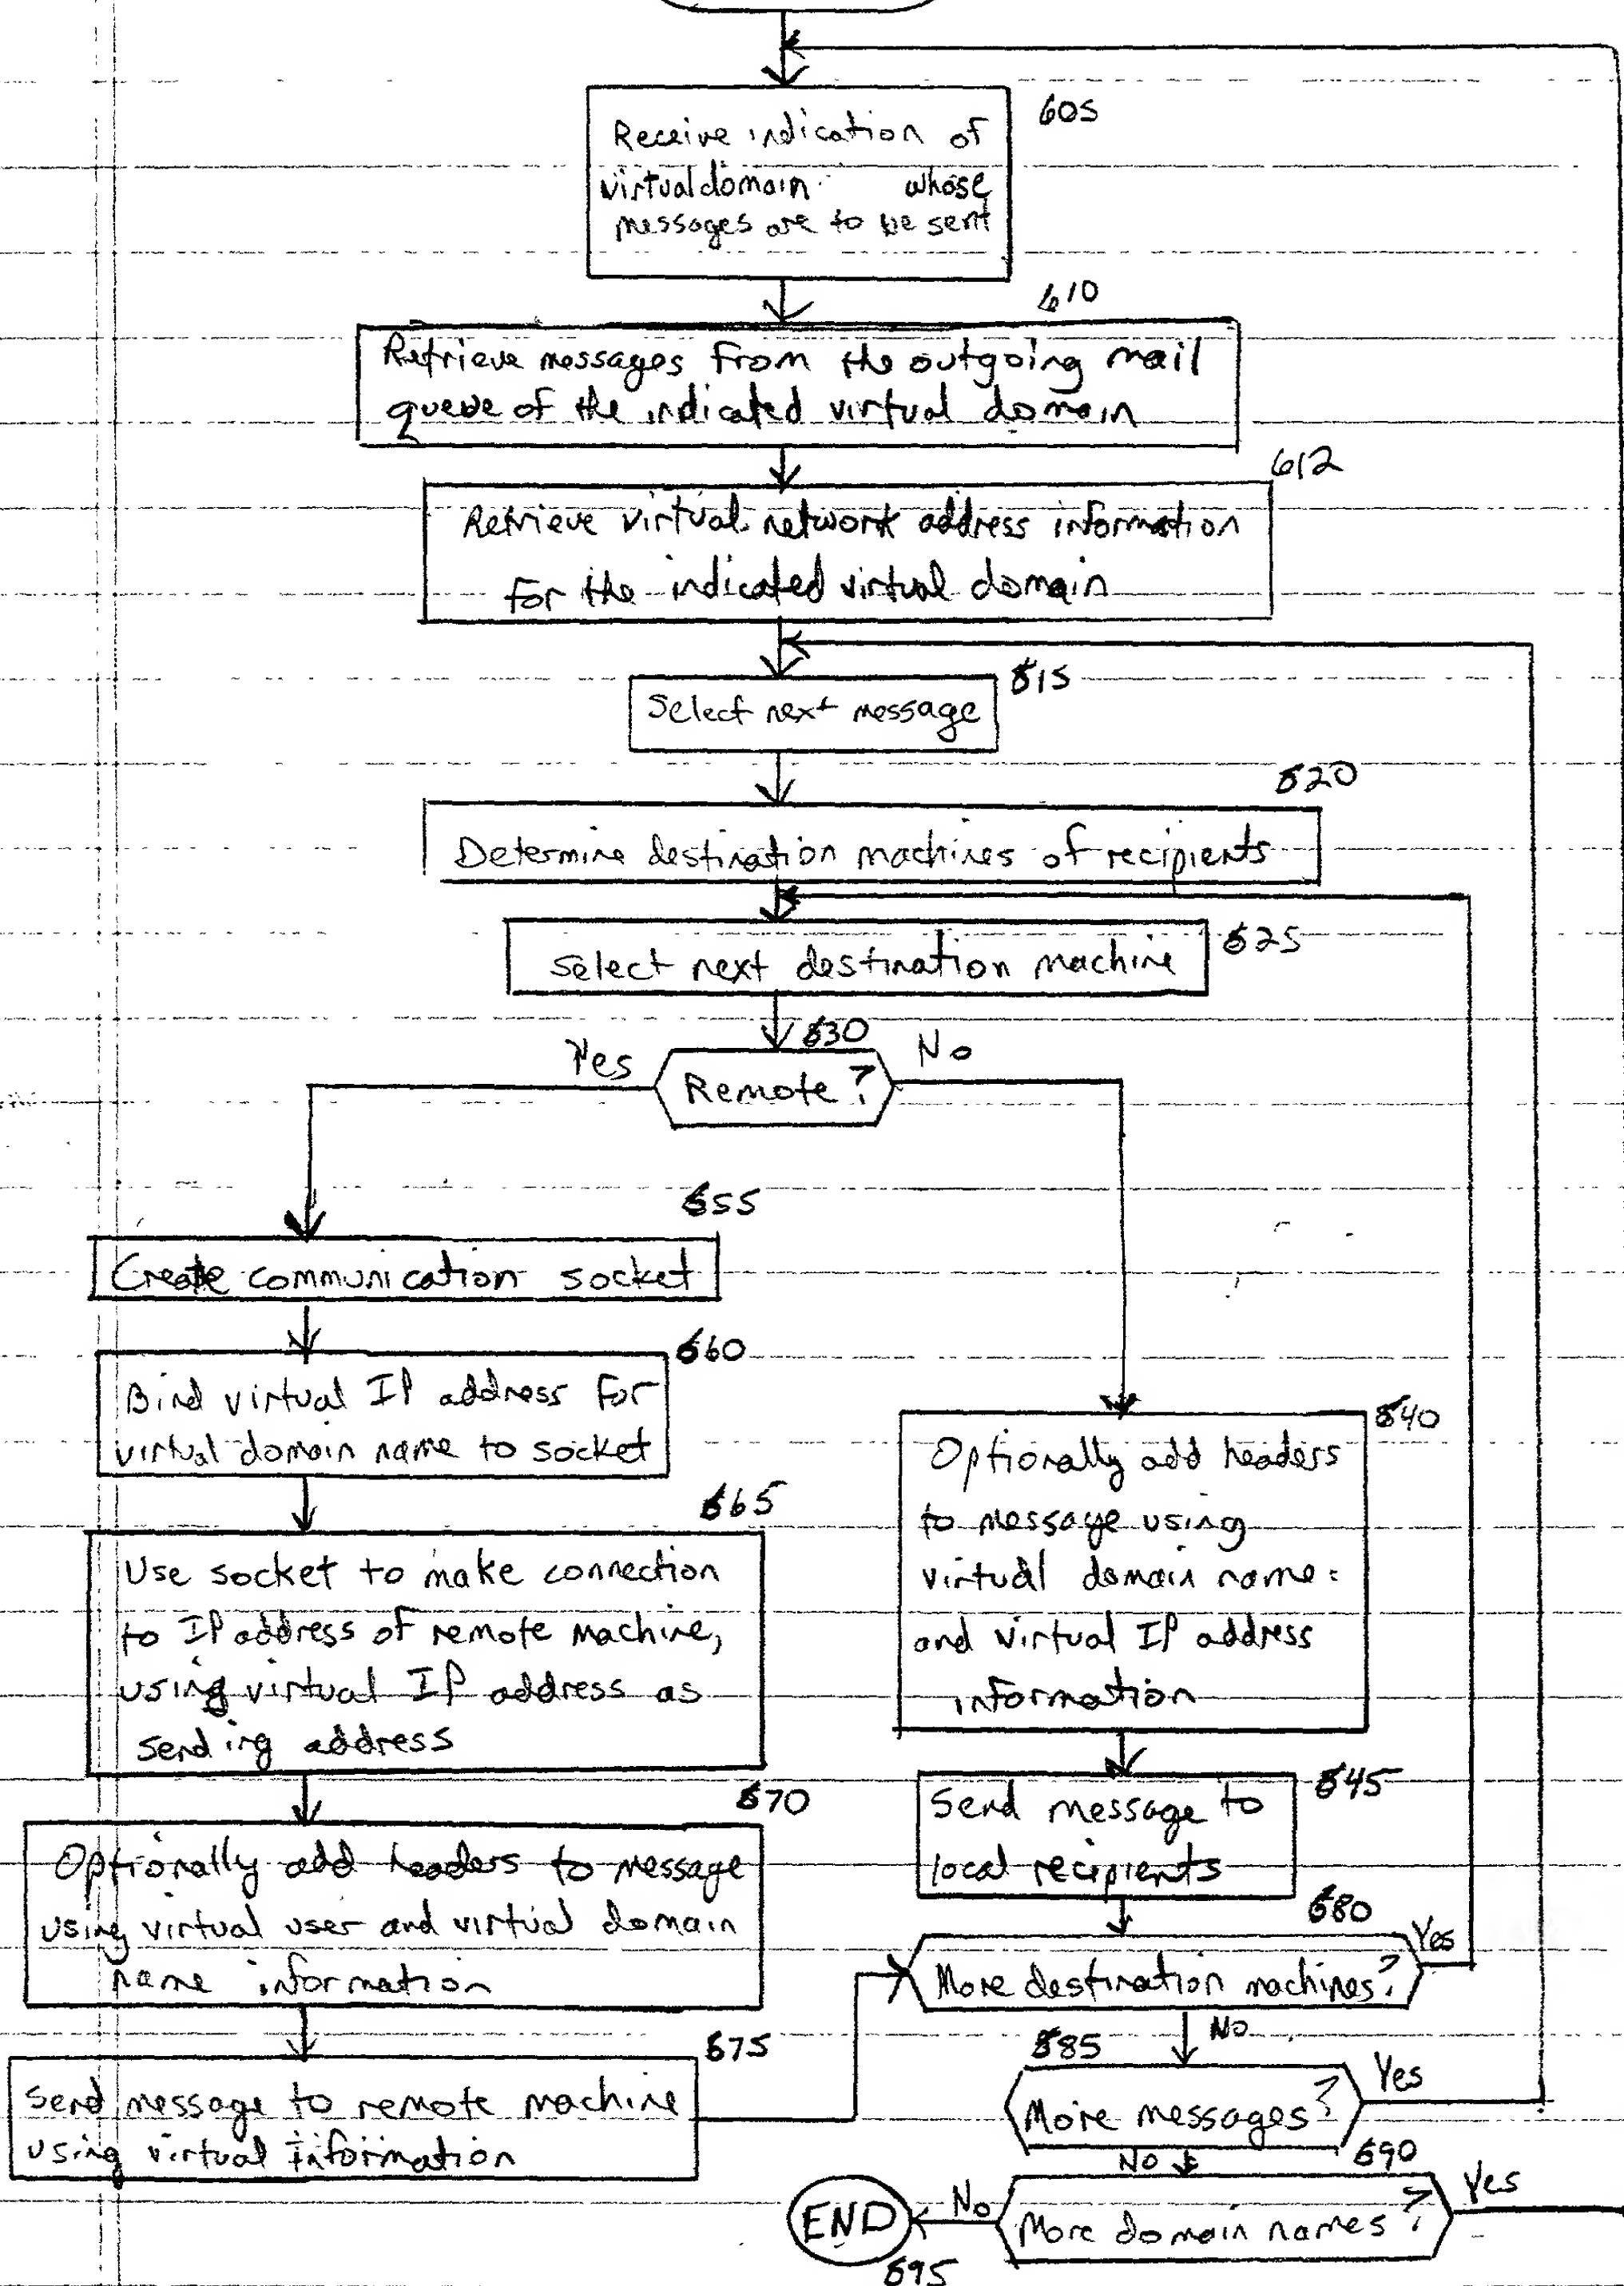 605
Receive indication of
virtual domain whose
messages are to be sent
610
Retrieve messages from the outgoing mail
queue of the indicated virtual domain
612
Retrieve virtual network address information
for the indicated virtual domain
615
Select next message
620
Determine destination machines of recipients
625
Select next destination machine
630
Yes
No
Remote?
655
Create communication socket
660
Bind virtual IP address for
virtual domain name to socket
665
Use socket to make connection
to IP address of remote machine,
using virtual IP address as
sending address
670
Optionally add headers to message
using virtual user and virtual domain
name information
675
Send message to remote machine
using virtual information
640
Optionally add headers
to message using
virtual domain name
and virtual IP address
information
645
Send message to
local recipients
680
Yes
More destination machines?
No
685
Yes
More messages?
No
690
Yes
More domain names?
No
END
695